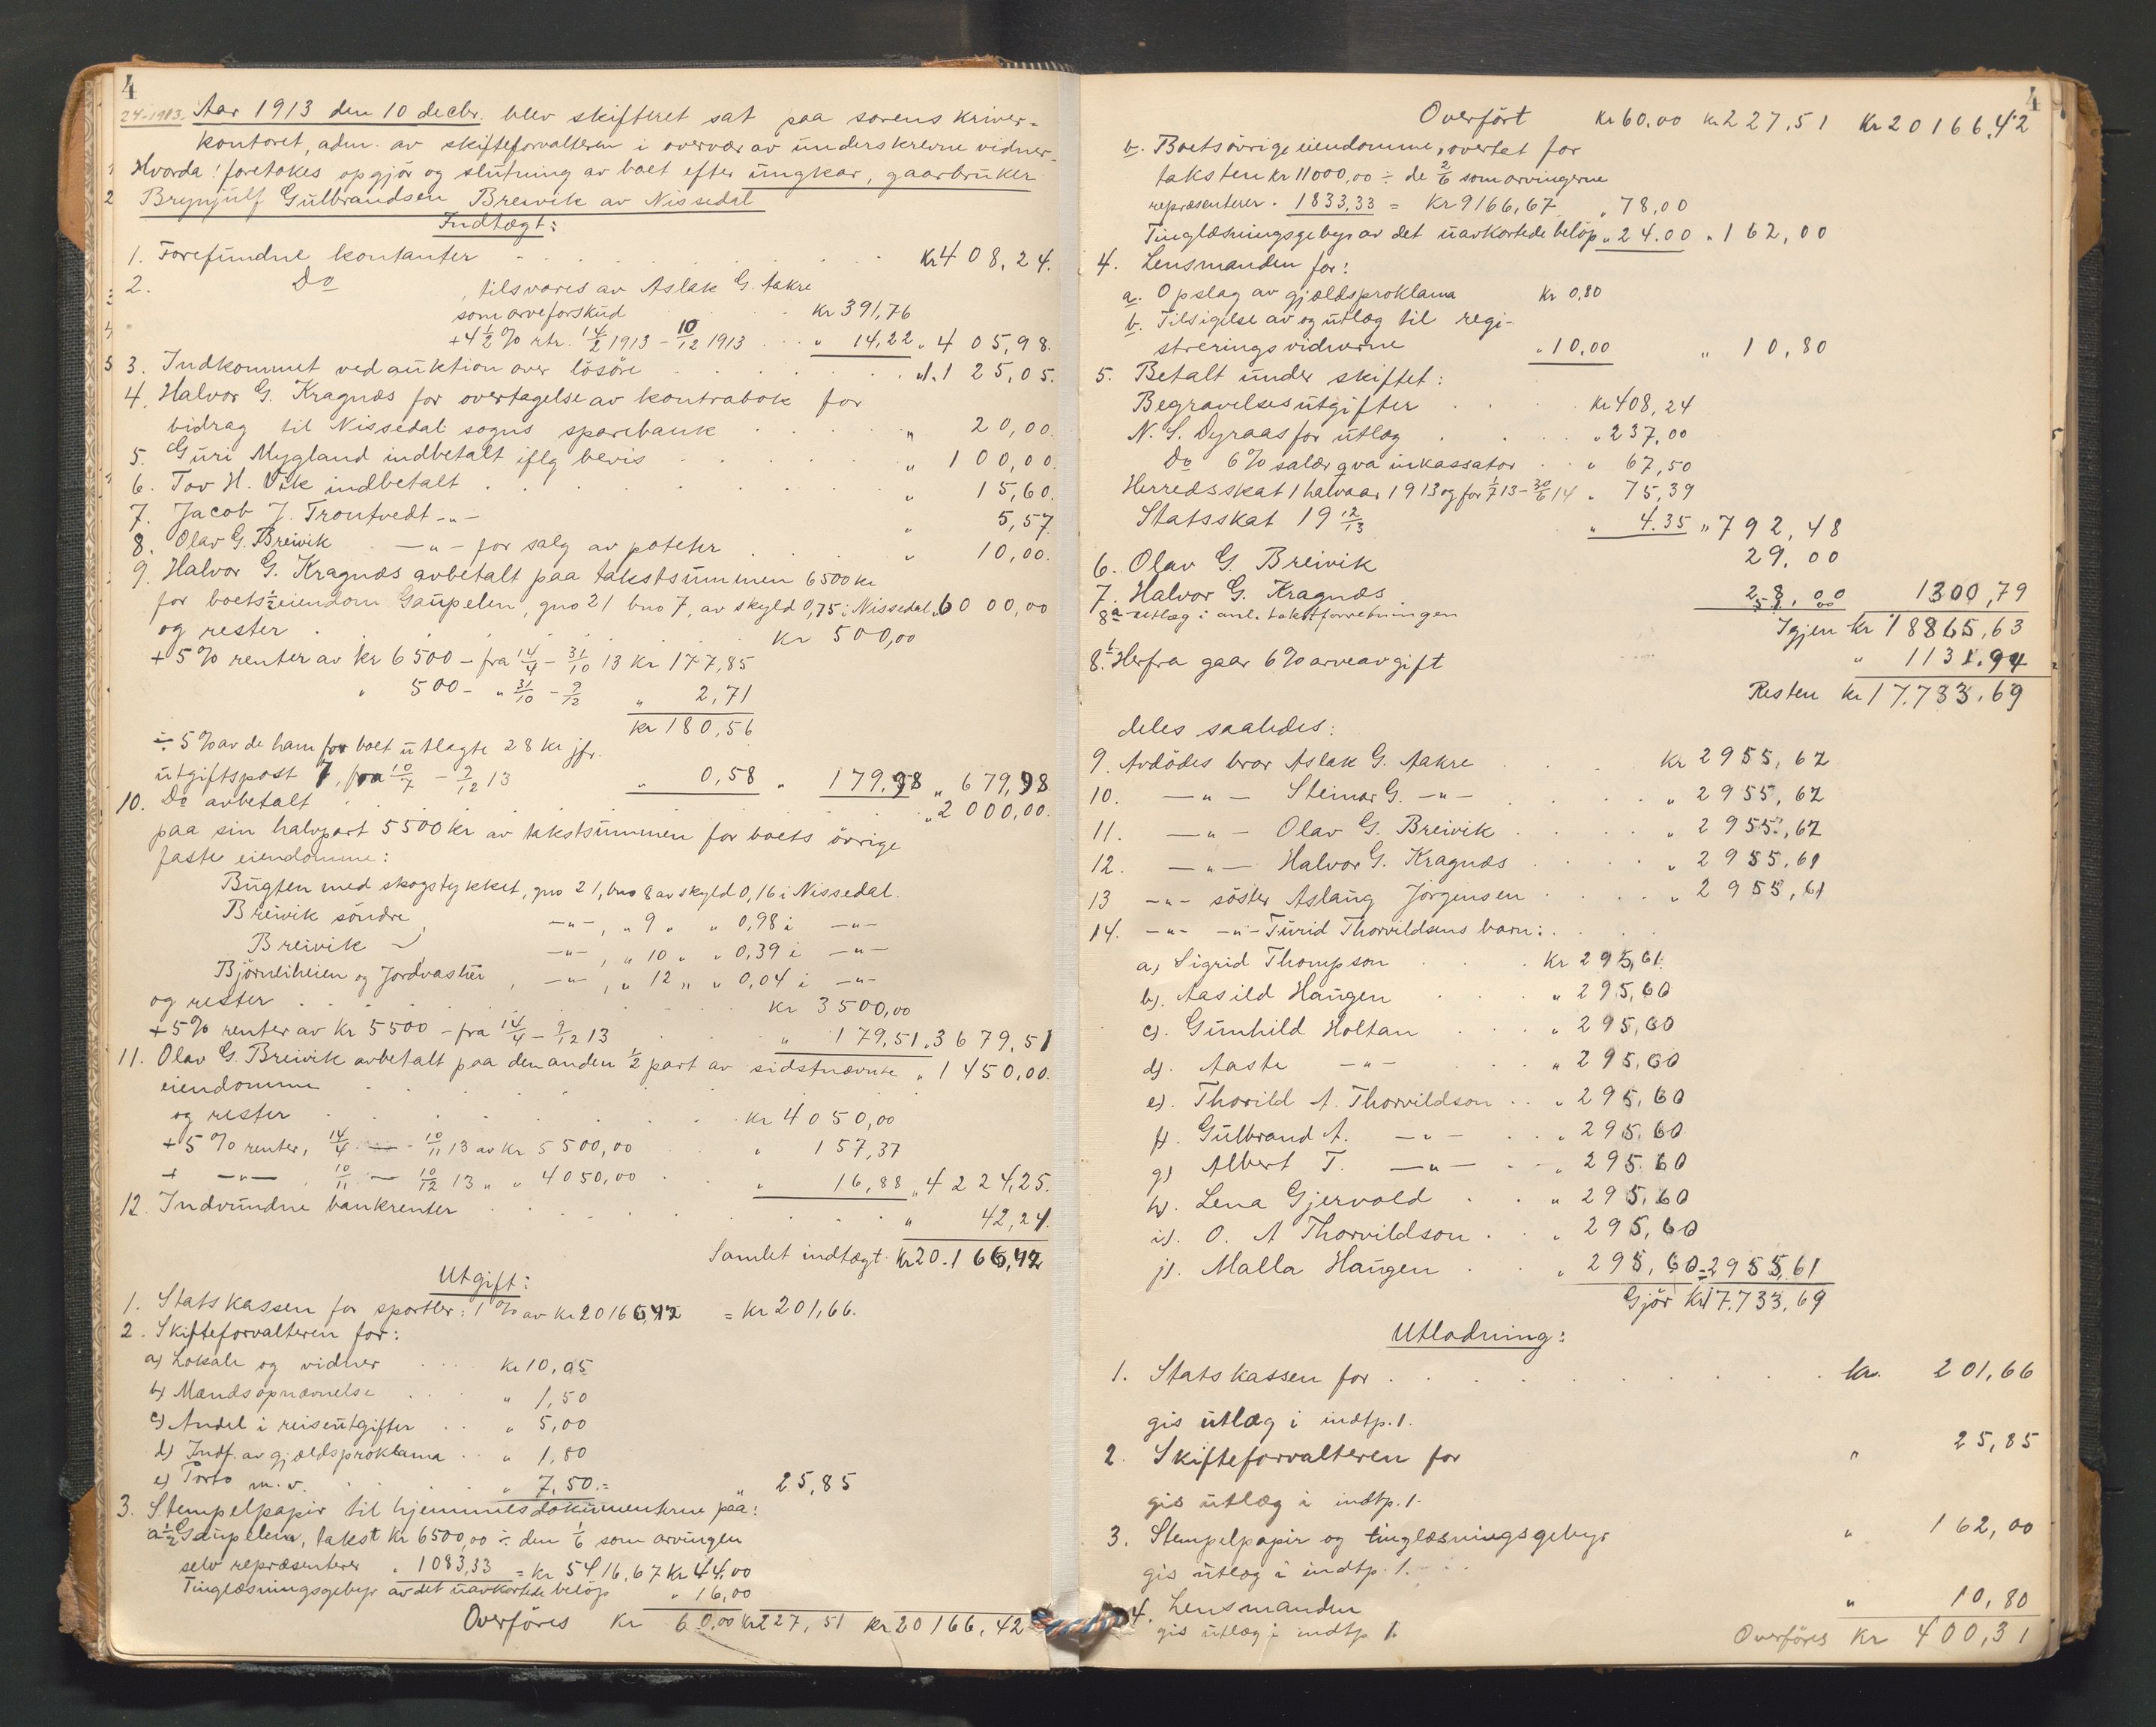 4
24-1913. Aar 1913 den 10 decbr. blev skifteret sat paa sorenskriver-
kontoret, adm. av skifteforvalteren i overvær av underskrevne vidner.
Hvorda! foretokes opgjør og slutning av boet efter ungkar, gaardbruker
Brynjulf Gulbrandsen Breivik av Nissedal
Indtægt:
1. Forefundne kontanter . . . Kr 408,24.
2. Do tilsvares av Aslak G. Aakre
som arveforskud Kr 391,76
+ 4½ % rtr. 14/2 1913 - 10/12 1913 . . " 14,22 " 405,98.
3. Indkommet ved auktion over løsøre . . . " 1.125,05.
4. Halvor G. Kragnæs for overtagelse av kontrabok for
bidrag til Nissedal sogns sparebank . . . " 20,00.
5. Guri Mygland indbetalt iflg bevis . . . " 100,00.
6. Tov H. Vik indbetalt . . . " 15,60.
7. Jacob J. Trontvedt -"- " 5,57
8. Olav G. Breivik -"- for salg av poteter . . . " 10,00.
9. Halvor G. Kragnæs avbetalt paa takstsummen 6500 kr
for boets ½ eiendom Gaupelen, gno 21 bno 7, av skyld 0,75 i Nissedal " 6000,00
og rester . Kr 500,00
+ 5% renter av kr 6500 - fra 14/4 - 31/10 13 Kr 177,85
" 500 - " 31/10 - 9/12 " 2,71
Kr 180,56
÷ 5% av de ham for boet utlagte 28 kr jfr.
utgiftspost 7, fra 10/7 - 9/12 13 " 0,58 " 179,98 " 679,98
10. Do avbetalt . . . " 2000,00.
paa sin halvpart 5500 kr av takstsummen for boets övrige
faste eiendomme:
Bugten med skogstykket, gno 21, bno 8 av skyld 0,16 i Nissedal.
Breivik söndre, -"-, " 9 " " 0,98 i -"-
Breivik -"-, -"-, " 10 " " 0,39 i -"-
Björneiheien og Jordvastöi, -"-, " 12 " " 0,04 i -"-
og rester . . . Kr 3500,00
+ 5% renter av Kr 5500 - fra 14/4 - 9/12 13 " 179,51 " 3679,51
11. Olav G. Breivik avbetalt paa den anden ½ part av sidstnævnte " 1450,00.
eiendomme
og rester . . . Kr 4050,00
+ 5% renter, 14/4 — 10/11 13 av Kr 5500,00 " 157,37
+ -"- 10/11 — 10/12 13 " " 4050,00 . . " 16,88 " 4224,25.
12. Indvundne bankrenter . . . " 42,24.
Samlet indtægt Kr 20.166,42
Utgift:
1. Statskassen for sportler: 1% av Kr 20166,42 = Kr 201,66.
2. Skifteforvalteren for:
a) Lokale og vidner . . . Kr 10,05
b) Mandsopnævnelse . . . " 1,50
c) Andel i reiseutgifter . . " 5,00
d) Indf. av gjældsproklama . . " 1,80
e) Porto m.v. . . . " 7,50.= " 25,85
3. Stempelpapir til hjemmelsdokumenterne paa:
a ½ Gaupelen, takst Kr 6500,00 ÷ den 1/6 som arvingen
selv repræsenterer " 1083,33 = Kr 5416,67 Kr 44,00
Tinglæsningsgebyr av det uavkortede beløp " 16,00
Overføres Kr 60,00 Kr 227,51 Kr 20166,42
4
Overført Kr 60,00 Kr 227,51 Kr 20166,42
b. Boets övrige eiendomme, overtat for
taksten Kr 11000,00 ÷ de 2/6 som arvingerne
repræsenterer " 1833,33 = Kr 9166,67 " 78,00
Tinglæsningsgebyr av det uavkortede beløp " 24.00 " 162,00
4. Lensmanden for:
a. Opslag av gjældsproklama Kr 0,80
b. Tilsigelse av og utlæg til regi-
streringsvidnerne " 10,00 " 10,80
5. Betalt under skiftet:
Begravelsesutgifter . . . Kr 408,24
N. S. Dyraas for utlæg . . . " 237,00
Do 6% salær qva inkassator . . " 67,50
Herredsskat 1 halvaar 1913 og for 1/7 13 - 30/6 14 " 75,39
Statsskat 19 12/13 " 4.35 " 792,48
6. Olav G. Breivik 29.00
7. Halvor G. Kragnæs 28,00 1300,79
8a utlæg i anl. takstforretningen
Igjen Kr 18865,63
8b. Herfra gaar 6% arveavgift " 1131.94
Resten Kr 17.733,69
deles saaledes:
9. Avdödes bror Aslak G. Aakre . . Kr 2955,62
10. -"- Steinar G. -"- . . . " 2955,62
11. -"- Olav G. Breivik . . . " 2955,62
12. -"- Halvor G. Kragnæs . . . " 2955,61
13 -"- söster Aslaug Jörgensen . . . " 2955,61
14. -"- -"- Turid Thorvildsens barn: . . .
a) Sigrid Thompson . . . Kr 295,61.
b). Aasild Haugen . . . " 295,60
c). Gunhild Holtan . . . " 295,60
d). Aaste -"- . . " 295,60
e). Thorild A. Thorvildson . . " 295,60
f). Gulbrand A. -"- . . " 295,60
g) Albert T. -"- . . " 295.60
h). Lena Gjervold . . " 295,60
i). O. A Thorvildson . . " 295,60
j). Malla Haugen . . " 295,60 = 2955,61
Gjør Kr 17.733,69
Utlodning:
1. Statskassen for . . . kr. 201,66
gis utlæg i indtp. 1.
2. Skifteforvalteren for " 25,85
gis utlæg i indtp. 1.
3. Stempelpapir og tinglæsningsgebyr " 162,00
gis utlæg i indtp. 1.
4. Lensmanden " 10,80
gis utlæg i indtp 1.
Overföres Kr 400,31